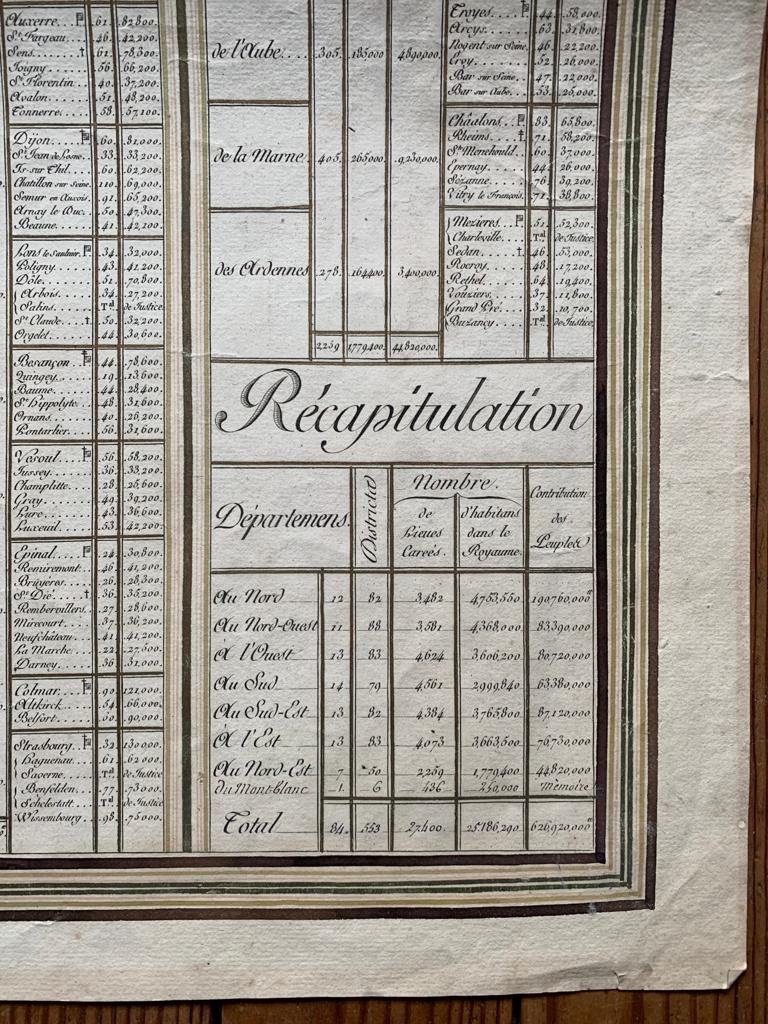 Auxerre 61. 82,800.
St. Fargeau 46. 42,200.
Sens † 61. 78,300.
Joigny 56. 66,200.
St. Florentin 40. 37,200.
Avalon 51. 48,200.
Tonnerre 58. 57,100.
Dijon 60. 81,000.
St. Jean de Losne 33. 33,200.
Is-sur-Thil 60. 62,200.
Chatillon sur Seine 110. 69,000.
Semur en Auxois 91. 65,200.
Arnay le Duc 50. 47,300.
Beaune 41. 42,100.
Lons le Saulnier 34. 32,000.
Poligny 43. 41,200.
Dôle 51. 70,800.
Arbois 34. 27,200.
Salins T.al de Justice
St. Claude † 50. 32,200.
Orgelet 44. 30,600.
Besançon 44. 78,600.
Quingey 19. 13,600.
Baume 44. 28,400.
St. Hippolyte 48. 31,600.
Ornans 40. 26,200.
Pontarlier 56. 31,600.
Vesoul 56. 58,200.
Jussey 36. 33,200.
Champlitte 28. 25,600.
Gray 49. 39,200.
Lure 43. 36,600.
Luxeuil 53. 42,200.
Epinal 24. 30,800.
Remiremont 46. 41,200.
Bruyéres 26. 28,300.
St. Dié † 36. 35,200.
Rembervillers 27. 28,600.
Mirecourt 37. 36,200.
Neufchâteau 41. 41,200.
La Marche 22. 27,500.
Darney 36. 31,000.
Colmar 90. 121,000.
Altkirck 54. 66,000.
Belfort 60. 90,000.
Strasbourg 32. 130,000.
Haguenau 61. 62,000.
Saverne T.al de Justice
Benfelden 77. 73,000.
Schelestatt T.al de Justice
Wissembourg 98. 75,000.
de l'Aube 305. 185000 4,890,000.
de la Marne 405. 265000. 9,230,000.
des Ardennes 278. 164400. 3,400,000.
2239 1779400. 44,820,000.
Troyes 44. 58,000.
Arcys 63. 31,800.
Nogent sur Seine 46. 22,200.
Ervy 52. 26,000.
Bar sur Seine 47. 22,000.
Bar sur Aube 53. 25,000.
Châalons 83. 65,800.
Rheims † 71. 58,200.
Ste. Menehould 60. 37,000.
Epernay 44. 26,000.
Sézanne 76. 39,200.
Vitry le François 71. 38,800.
Mezieres 51. 52,300.
Charleville T.al de Justice
Sedan † 46. 53,000.
Rocroy 48. 17,200.
Rethel 64. 19,400.
Vouziers 37. 11,800.
Grand Pré 32. 10,700.
Buzancy T.al de Justice
Récapitulation
Départemens.
Districts
Nombre.
de Lieues Carées.
d'habitans dans le Royaume.
Contribution des Peuples
Au Nord 12 82 3,482 4,753,550 190,760,000
Au Nord-Ouest 11 88 3,581 4,368,000 83,390,000
A l'Ouest 13 83 4,624 3,606,200 80,720,000
Au Sud 14 79 4,561 2,999,840 63,380,000
Au Sud-Est 13 82 4,384 3,765,800 87,120,000
A l'Est 13 83 4,073 3,663,500 76,730,000
Au Nord-Est 7 50 2,259 1,779,400 44,820,000
du Mont-blanc 1. 6 436 250,000 Mémoire
Total 84. 553 27,400 25,186,290 626,920,000